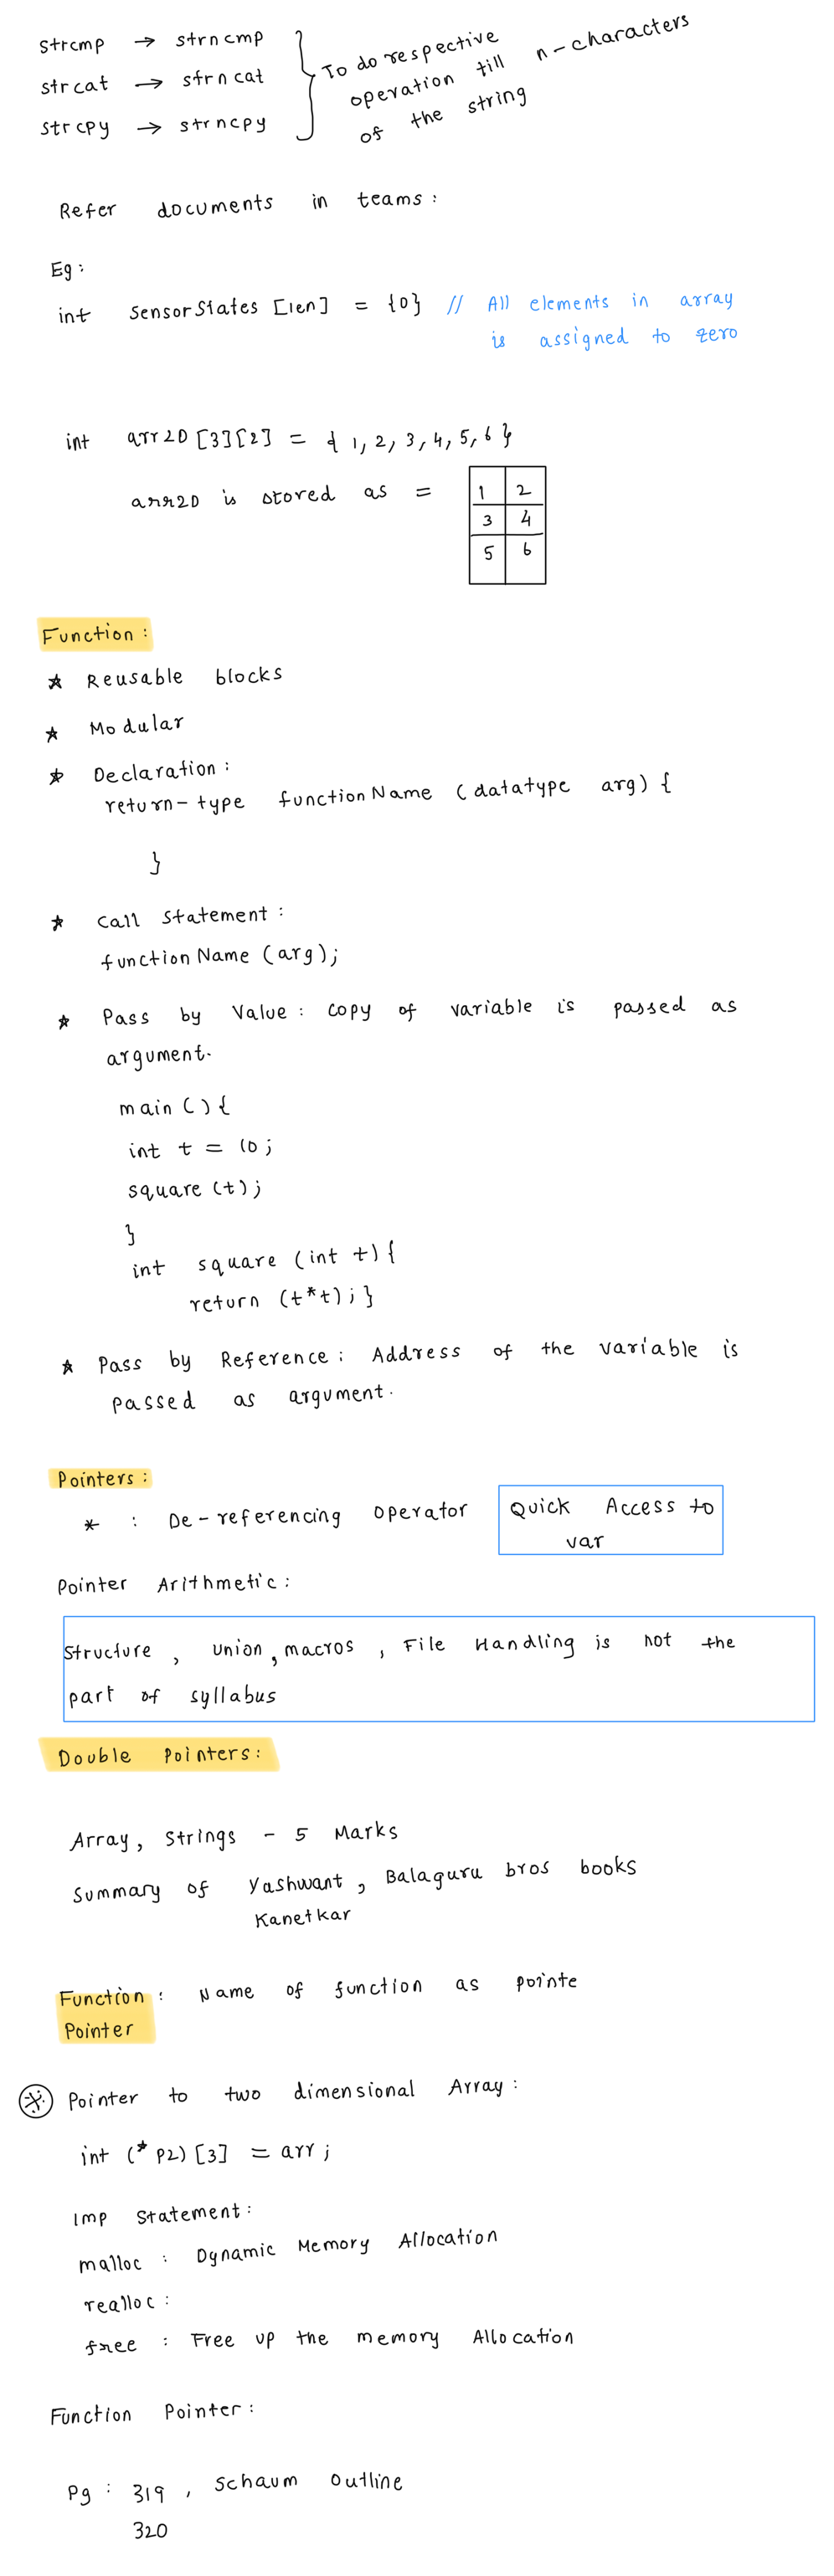 strcmp → strncmp
strcat → strncat
strcpy → strncpy
To do respective
operation till n-characters
of the string
Refer documents in teams:
Eg:
int sensorStates [len] = {0} // All elements in array
is assigned to zero
int arr2D [3][2] = { 1, 2, 3, 4, 5, 6 }
arr2D is stored as =
1 2
3 4
5 6
Function:
★ Reusable blocks
★ Modular
★ Declaration:
return-type functionName (datatype arg) {
}
★ Call Statement:
functionName (arg);
★ Pass by Value: copy of variable is passed as
argument.
main () {
int t = 10;
square (t);
}
int square (int t) {
return (t*t); }
★ Pass by Reference: Address of the variable is
passed as argument.
Pointers:
* : De-referencing operator
Quick Access to
var
Pointer Arithmetic:
Structure, Union, macros, File Handling is not the
part of syllabus
Double Pointers:
Array, Strings - 5 Marks
Summary of Yashwant, Balaguru bros books
Kanetkar
Function: Name of function as pointe
Pointer
※ Pointer to two dimensional Array:
int (* P2) [3] = arr;
Imp Statement:
malloc : Dynamic Memory Allocation
realloc:
free : Free up the memory Allocation
Function Pointer:
Pg : 319, Schaum Outline
320